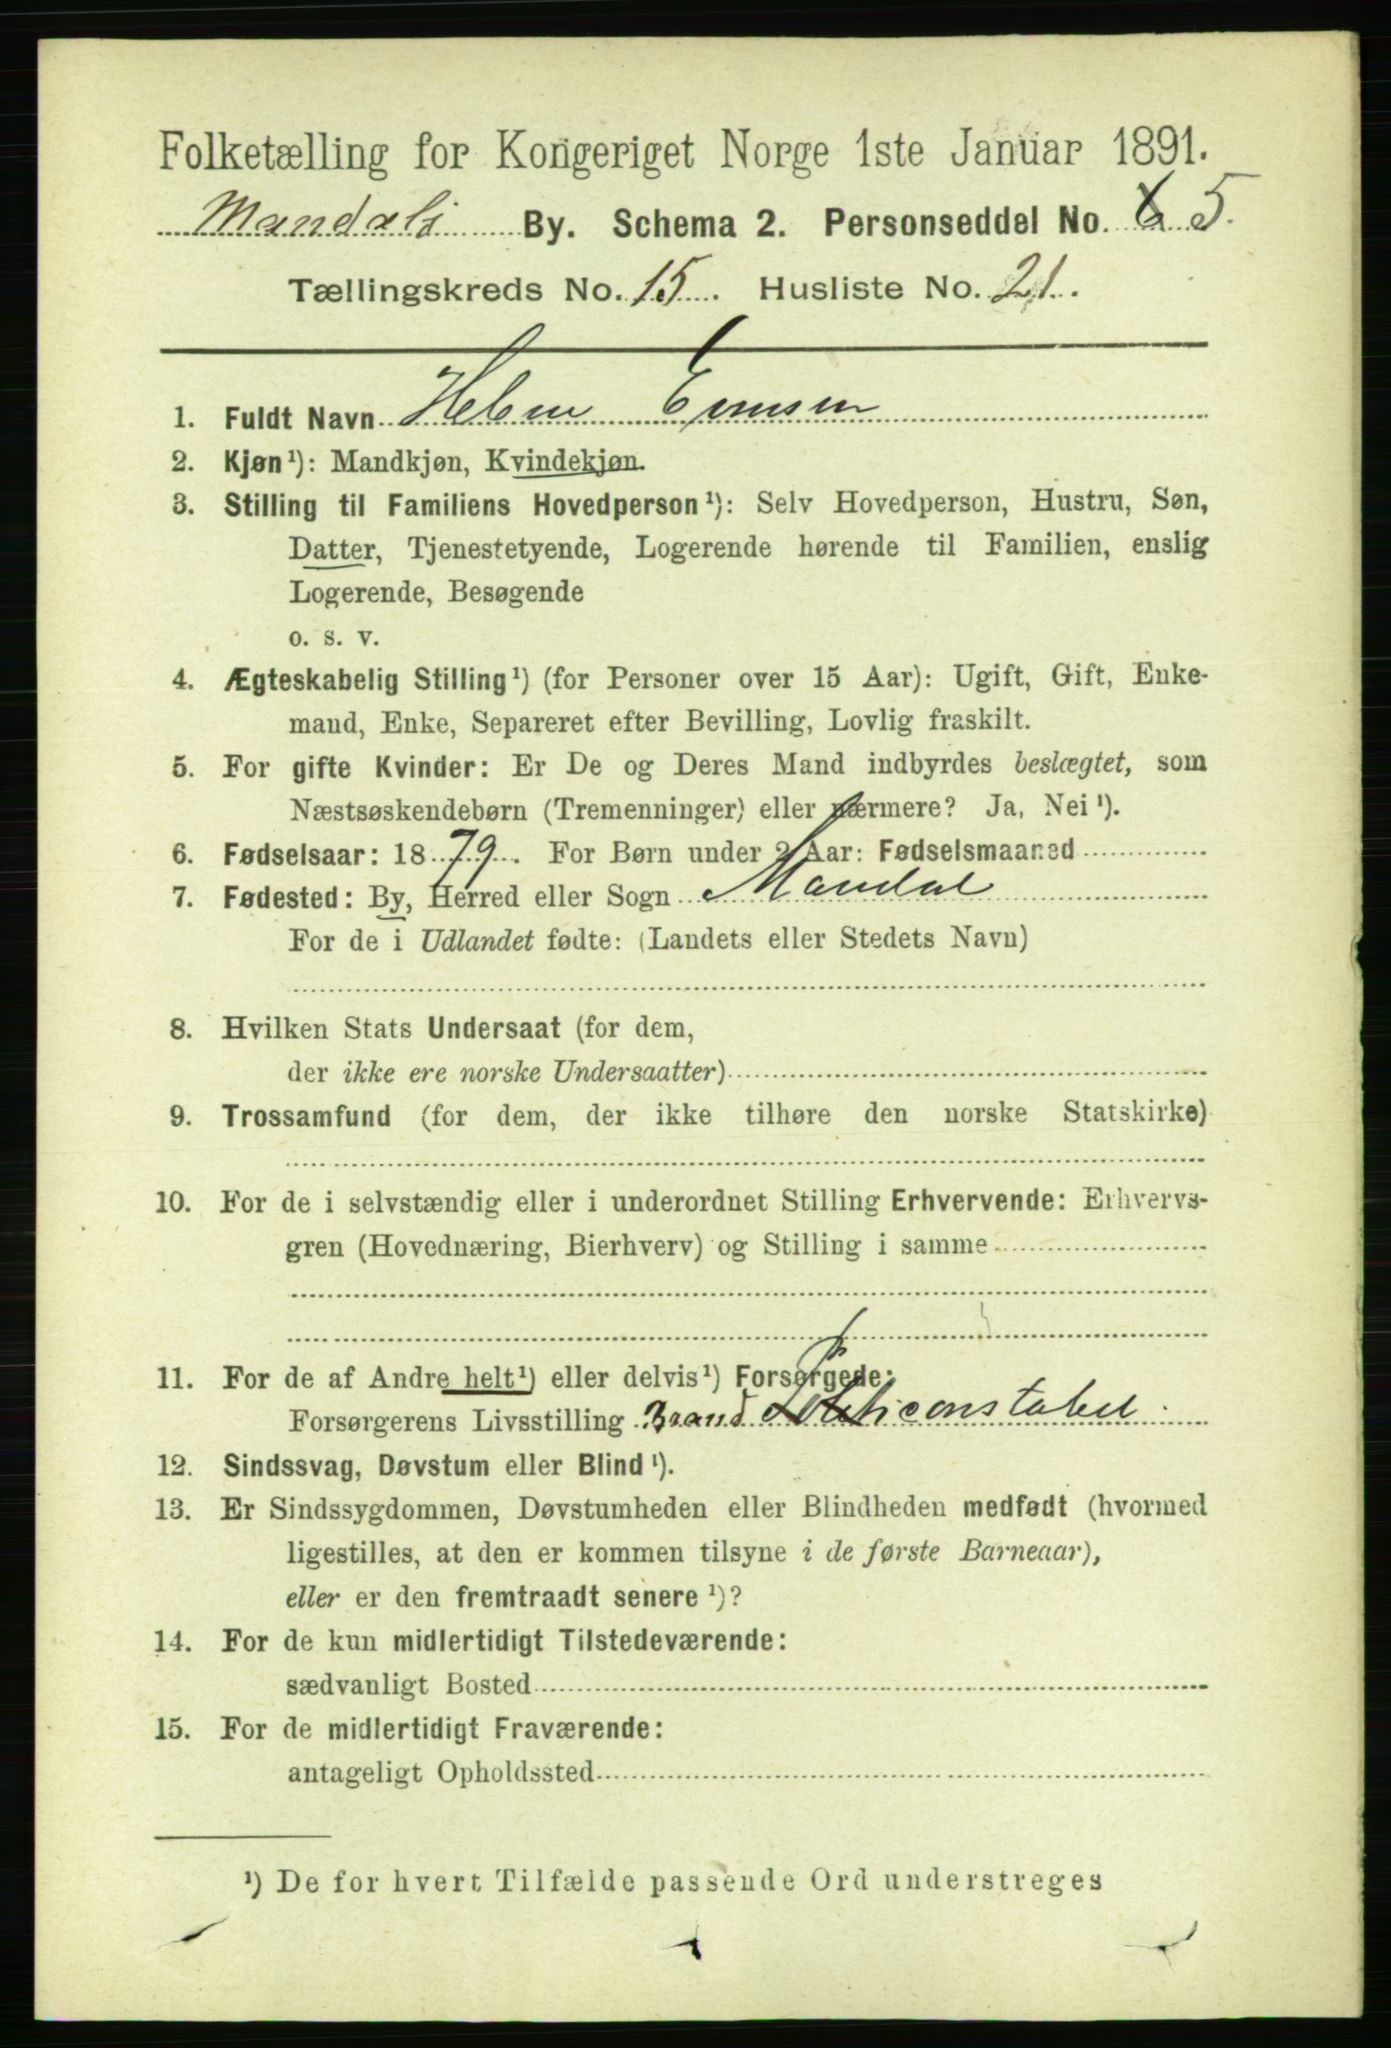 Folketælling for Kongeriget Norge 1ste Januar 1891.
Mandals By. Schema 2. Personseddel No. 6 5.
Tællingskreds No. 15. Husliste No. 21.
1. Fuldt Navn
2. Kjøn¹): Mandkjøn, Kvindekjøn.
3. Stilling til Familiens Hovedperson¹): Selv Hovedperson, Hustru, Søn,
Datter, Tjenestetyende, Logerende hørende til Familien, enslig
Logerende, Besøgende
o. s. v.
4. Ægteskabelig Stilling¹) (for Personer over 15 Aar): Ugift, Gift, Enke-
mand, Enke, Separeret efter Bevilling, Lovlig fraskilt.
5. For gifte Kvinder: Er De og Deres Mand indbyrdes beslægtet, som
Næstsøskendebørn (Tremenninger) eller nærmere? Ja, Nei¹).
6. Fødselsaar: 1879. For Børn under 2 Aar: Fødselsmaaned
7. Fødested: By, Herred eller Sogn Mandal
For de i Udlandet fødte: (Landets eller Stedets Navn)
8. Hvilken Stats Undersaat (for dem,
der ikke ere norske Undersaatter)
9. Trossamfund (for dem, der ikke tilhøre den norske Statskirke)
10. For de i selvstændig eller i underordnet Stilling Erhvervende: Erhvervs-
gren (Hovednæring, Bierhverv) og Stilling i samme
11. For de af Andre helt¹) eller delvis¹) Forsørgede:
Forsørgerens Livsstilling Brand constabel.
12. Sindssvag, Døvstum eller Blind¹).
13. Er Sindssygdommen, Døvstumheden eller Blindheden medfødt (hvormed
ligestilles, at den er kommen tilsyne i de første Barneaar),
eller er den fremtraadt senere¹)?
14. For de kun midlertidigt Tilstedeværende:
sædvanligt Bosted
15. For de midlertidigt Fraværende:
antageligt Opholdssted
¹) De for hvert Tilfælde passende Ord understreges